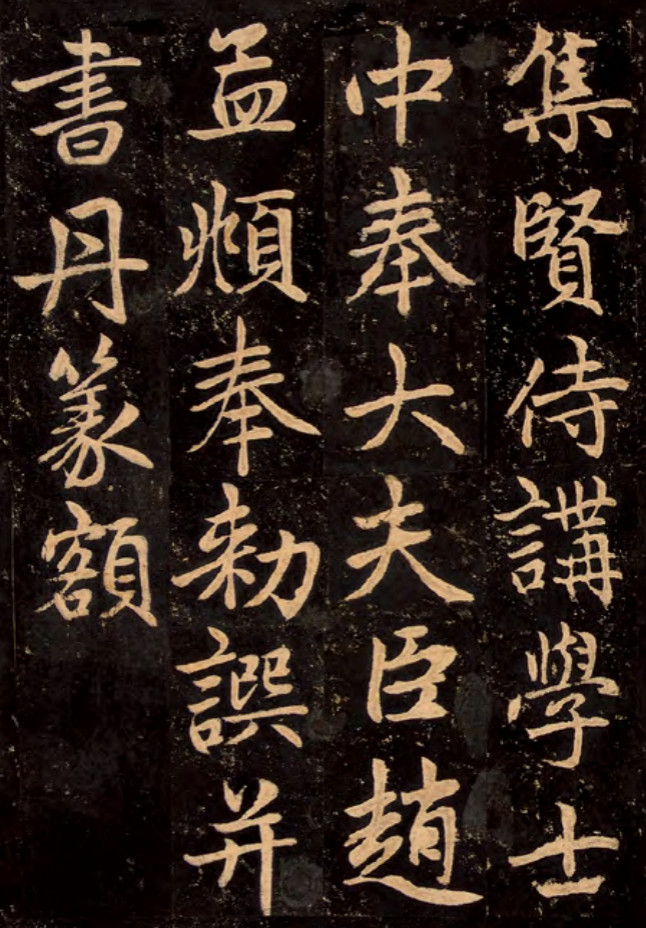 集賢侍講學士
中奉大夫臣趙
孟頫奉勑譔并
書丹篆額